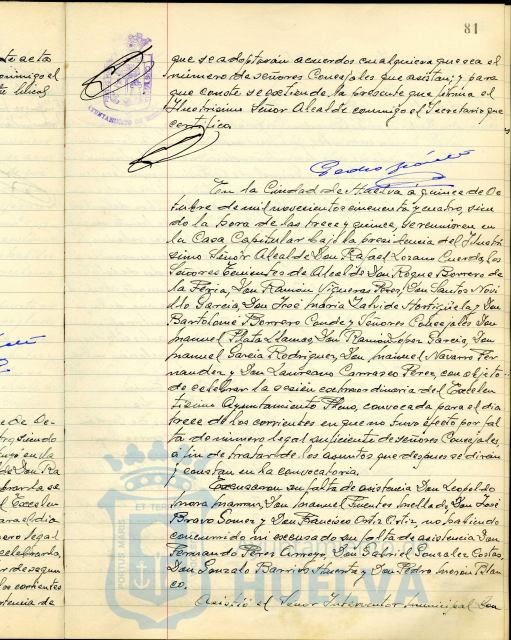 81
te acta
conmigo el
que se adoptarán acuerdos cualquiera que sea el
número de señores Concejales que asistan; y para
que conste se extiende la presente que firma el
Ilustrísimo Señor Alcalde conmigo el Secretario que
certifica
AYUNTAMIENTO DE
En la Ciudad de Huelva a quince de Oc-
tubre de mil novecientos cincuenta y cuatro, sien
do la hora de las trece y quince, se reunieron en
la Casa Capitular bajo la presidencia del Ilustrí
simo Señor Alcalde Don Rafael Lozano Cuerda, los
Señores Tenientes de Alcalde Don Roque Borrero de
la Feria, Don Ramón Vigueras Pérez, Don Santos Novi
llo García, Don José María Zalvide Hortigüela, y Don
Bartolomé Borrero Conde y Señores Concejales Don
Manuel Plata Llamas, Don Ramón López García, Don
Manuel García Rodríguez, Don Manuel Navarro Fer-
nandez y Don Laureano Carrasco Pérez, con objeto
de celebrar la sesión extraordinaria del Excelen
tísimo Ayuntamiento Pleno, convocada para el día
trece de los corrientes en que no tuvo efecto por fal
ta de número legal suficiente de señores Concejales,
a fin de tratar de los asuntos que después se dirán
y constan en la convocatoria.
Excusaron su falta de asistencia Don Leopoldo
Mora Don Manuel Fuentes Don José
Bravo Gomez y Don Francisco Ortiz Ortiz, no habiendo
concurrido ni excusado su falta de asistencia Don
Fernando Pérez Arroyo, Don Gabriel González Castro,
Don Gonzalo Barrios Huerta y Don Pedro Morón Blan
co.
Asistió el Señor Interventor Municipal Don
de Oc-
siendo
en la
de Don Ra
celebrarla se
el Excelen
para el día
mero legal
celebrarla,
de segun
los corrientes
tencia de
PORTUS MARIS ET TERRAE
HUELVA